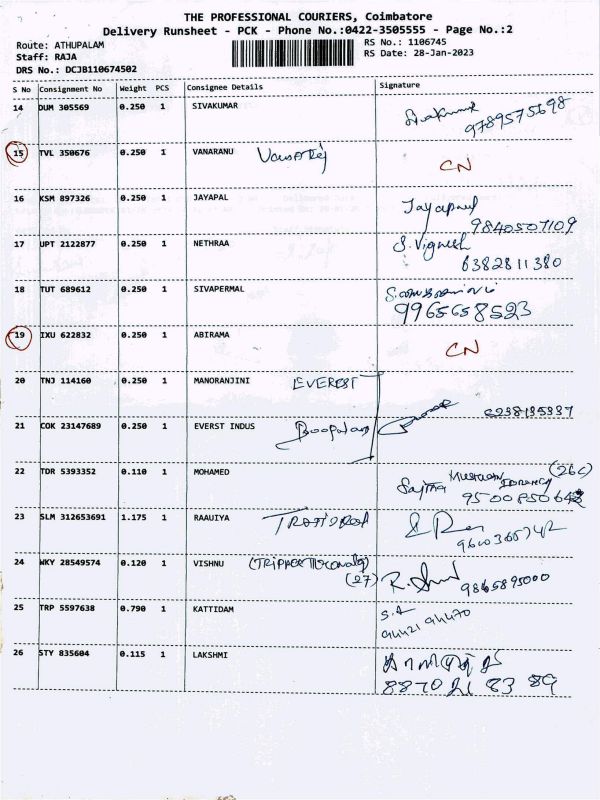 THE PROFESSIONAL COURIERS, Coimbatore
Delivery Runsheet - PCK - Phone No.:0422-3505555 - Page No.:2
Route: ATHUPALAM RS No.: 1106745
Staff: RAJA RS Date: 28-Jan-2023
DRS No.: DCJB110674502
S No Consignment No Weight PCS Consignee Details Signature
14 DUM 305569 0.250 1 SIVAKUMAR Sivakumar
9789575698
15 TVL 350676 0.250 1 VANARANU CN
16 KSM 897326 0.250 1 JAYAPAL Jayapaul
9840507109
17 UPT 2122877 0.250 1 NETHRAA S. Vignesh
6382811380
18 TUT 689612 0.250 1 SIVAPERMAL
9965658523
19 IXU 622832 0.250 1 ABIRAMA CN
20 TNJ 114160 0.250 1 MANORANJINI EVEREST
21 COK 23147689 0.250 1 EVERST INDUS Boopalan
22 TDR 5393352 0.110 1 MOHAMED (26c)
23 SLM 312653691 1.175 1 RAAUIYA
24 WKY 28549574 0.120 1 VISHNU (27) 9865895000
25 TRP 5597638 0.790 1 KATTIDAM S.A
94421 94470
26 STY 835604 0.115 1 LAKSHMI
8870 21 83 89